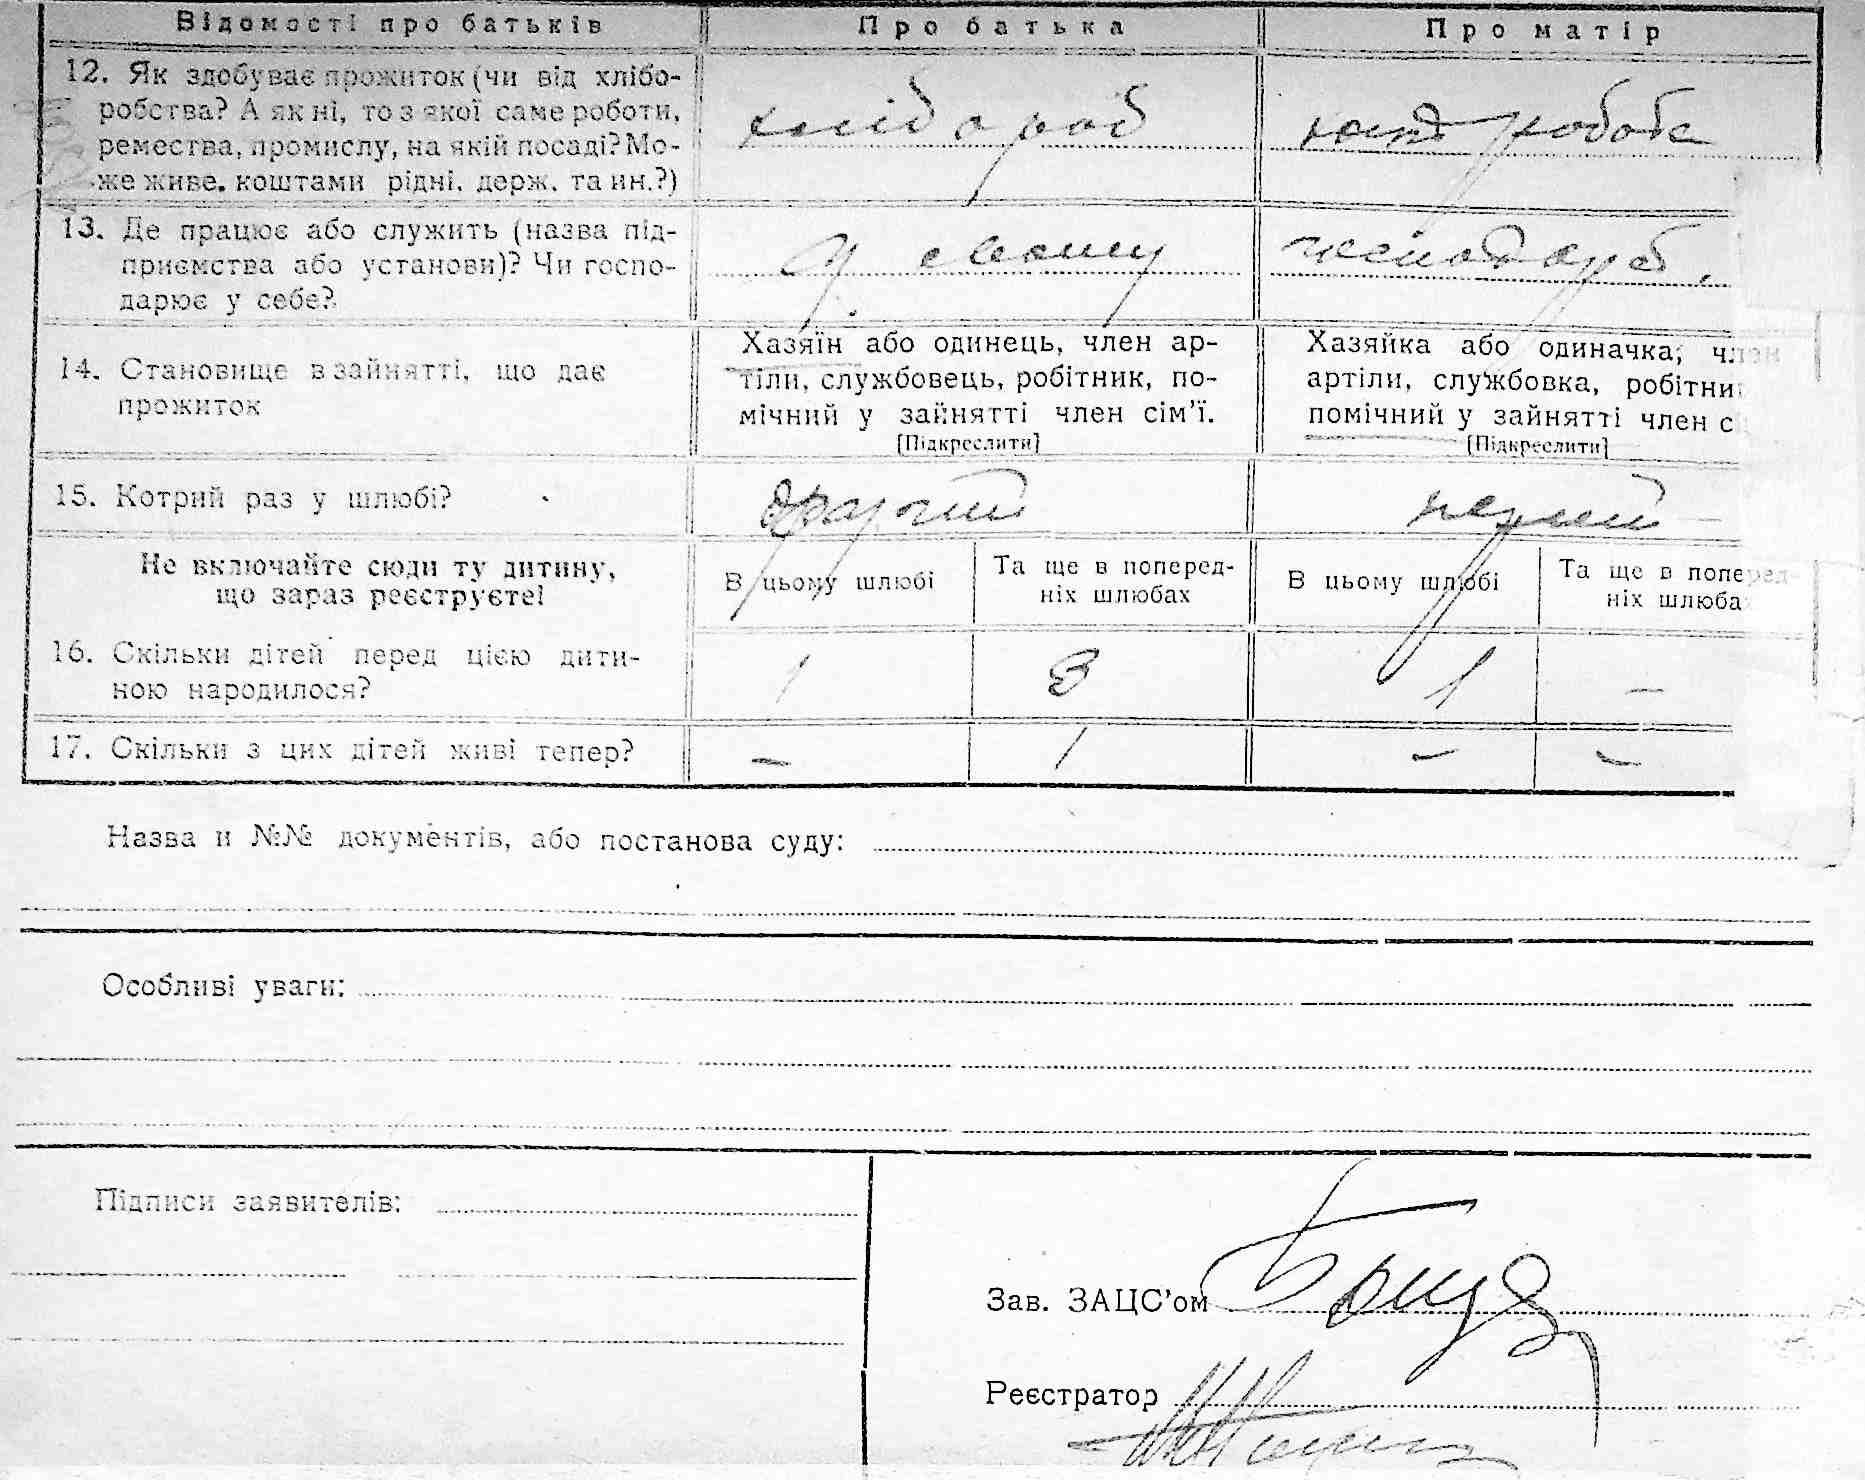 Відомості про батьків
Про батька
Про матір
12. Як здобуває прожиток (чи від хлібо-
робства? А як ні, то з якої саме роботи,
ремества, промислу, на якій посаді? Мо-
же живе, коштами рідні, держ. та ин.?)
хлібороб
робота
13. Де працює або служить (назва під-
приємства або установи)? Чи госпо-
дарює у себе?
У своему
господарст.
14. Становище в зайнятті, що дає
прожиток
Хазяїн або одинець, член ар-
тіли, службовець, робітник, по-
мічний у зайнятті член сім'ї.
[Підкреслити]
Хазяйка або одиначка, член
артіли, службовка, робітни
помічний у зайнятті член с
[Підкреслити]
15. Котрий раз у шлюбі?
другий
первый
Не включайте сюди ту дитину,
що зараз реєструєте!
В цьому шлюбі
Та ще в поперед-
ніх шлюбах
В цьому шлюбі
Та ще в поперед-
ніх шлюба
16. Скільки дітей перед цією дити-
ною народилося?
1
3
1
–
17. Скільки з цих дітей живі тепер?
–
1
–
–
Назва и №№ документів, або постанова суду:
Особливі уваги:
Підписи заявителів:
Зав. ЗАЦС'ом
Реєстратор